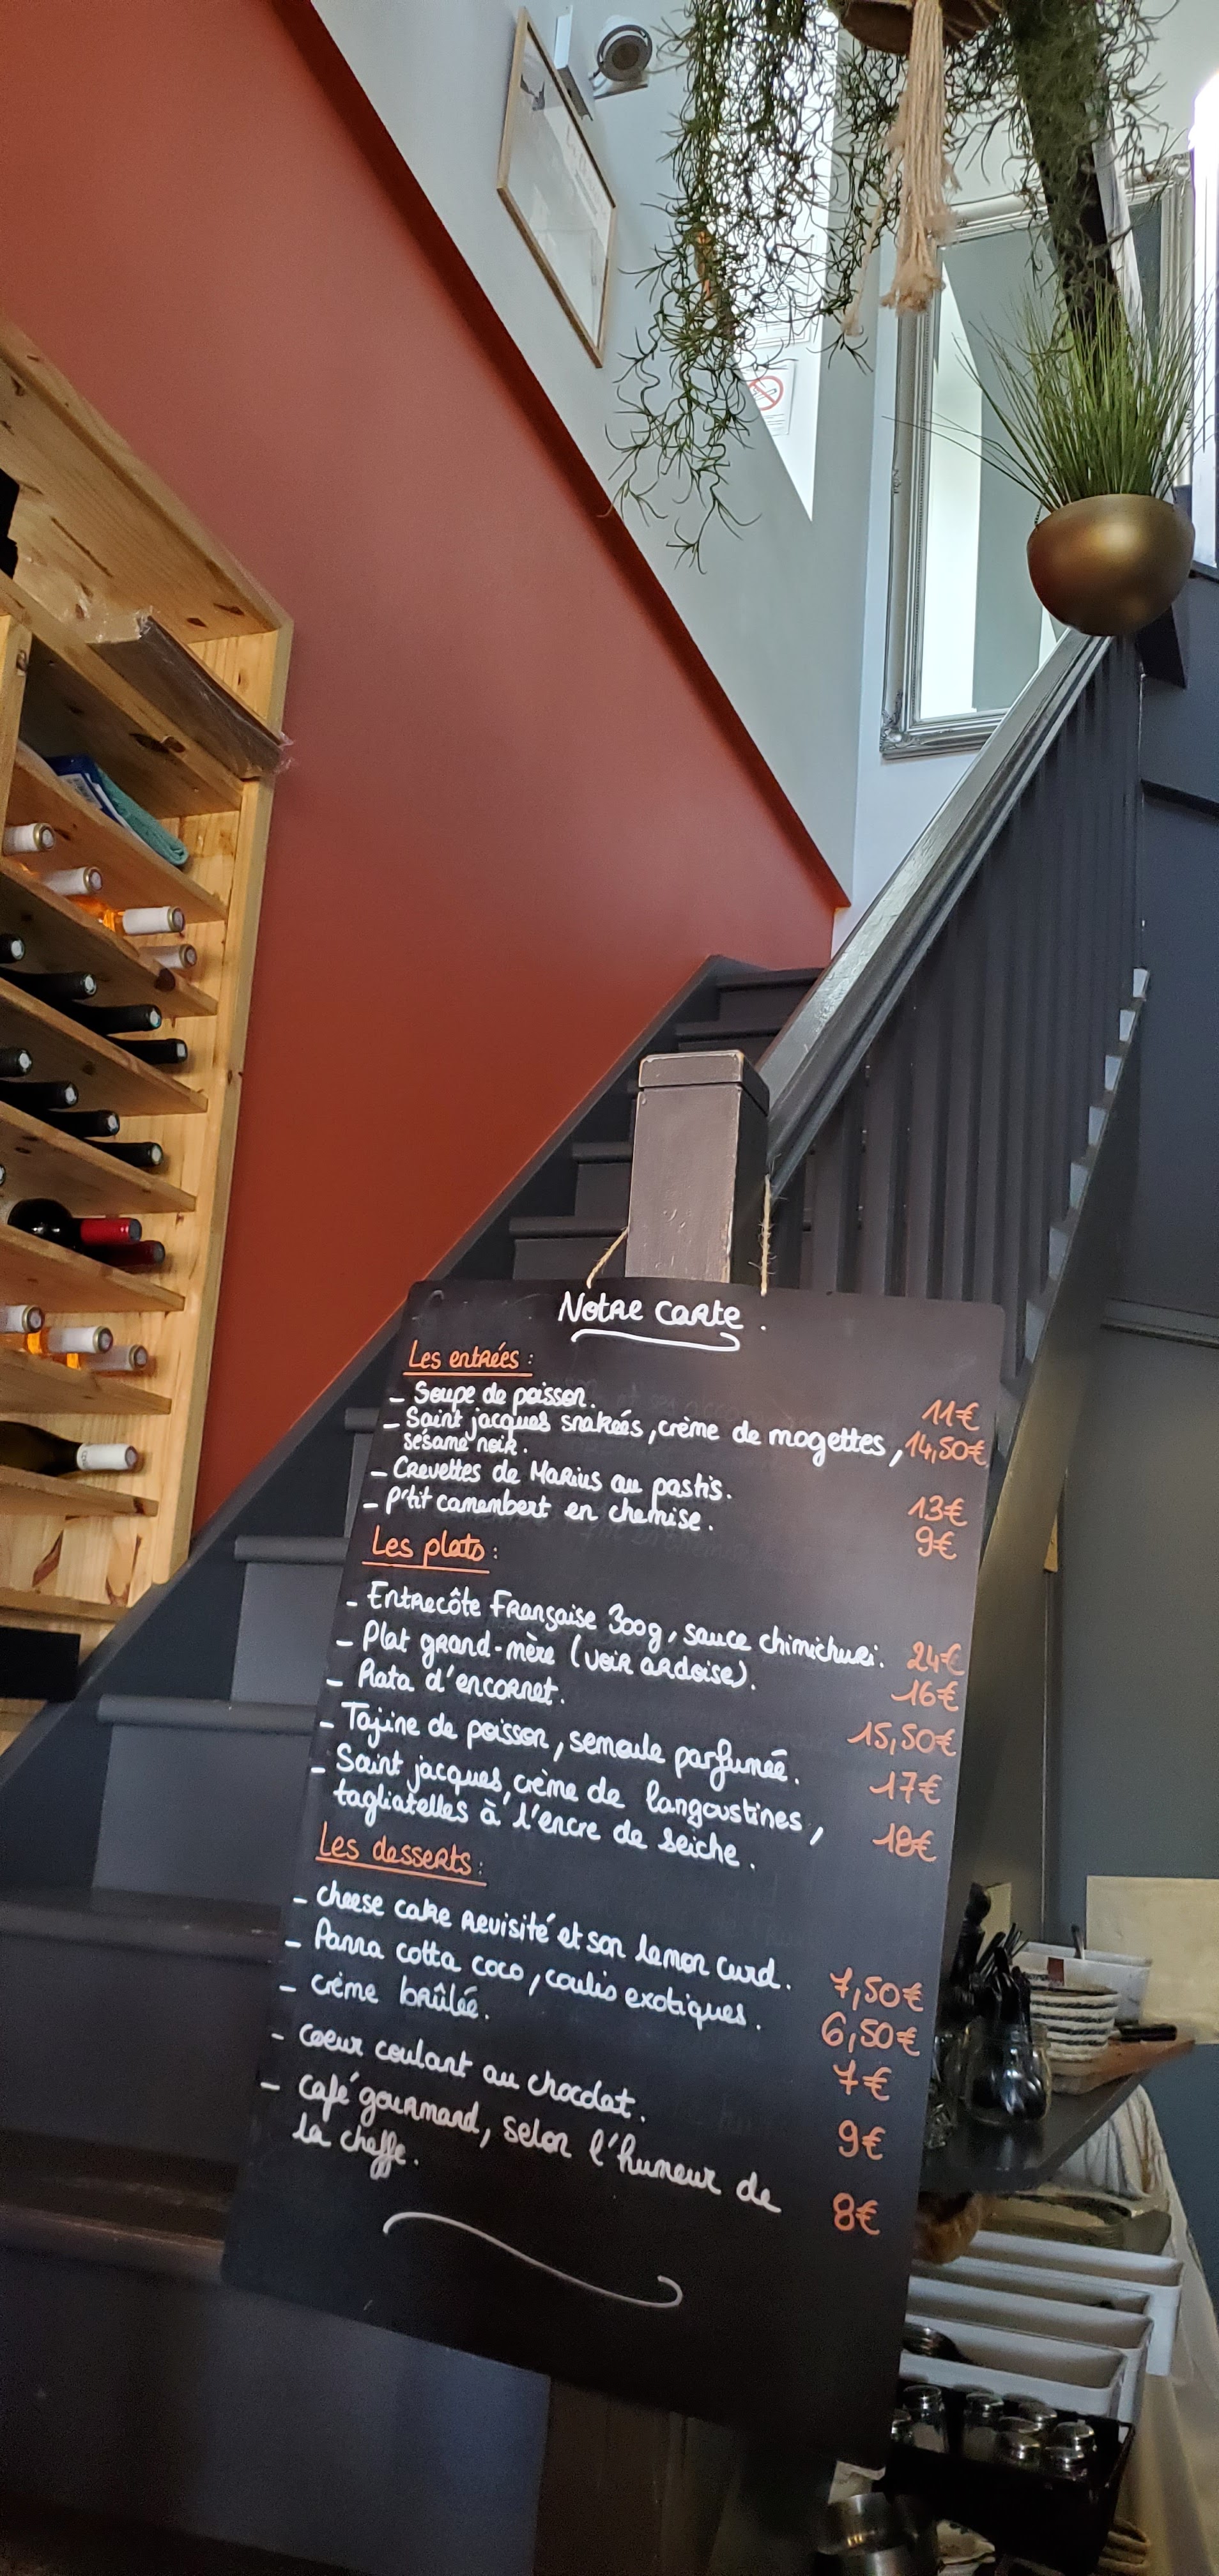 Notre carte.
Les entrées :
- Soupe de poisson. 11€
- Saint jacques snakées, crème de mogettes, 14,50€
sésame noir.
- Crevettes de Marius au pastis. 13€
- P'tit camembert en chemise. 9€
Les plats :
- Entrecôte Française 300g, sauce chimichuri. 24€
- Plat grand-mère (voir ardoise). 16€
- Rata d'encornet. 15,50€
- Tajine de poisson, semoule parfumée. 17€
- Saint jacques, crème de langoustines, 18€
tagliatelles à l'encre de seiche.
Les desserts :
- cheese cake revisité et son lemon curd. 7,50€
- Panna cotta coco, coulis exotiques. 6,50€
- crème brûlée. 7€
- coeur coulant au chocolat. 9€
- café gourmand, selon l'humeur de 8€
la cheffe.